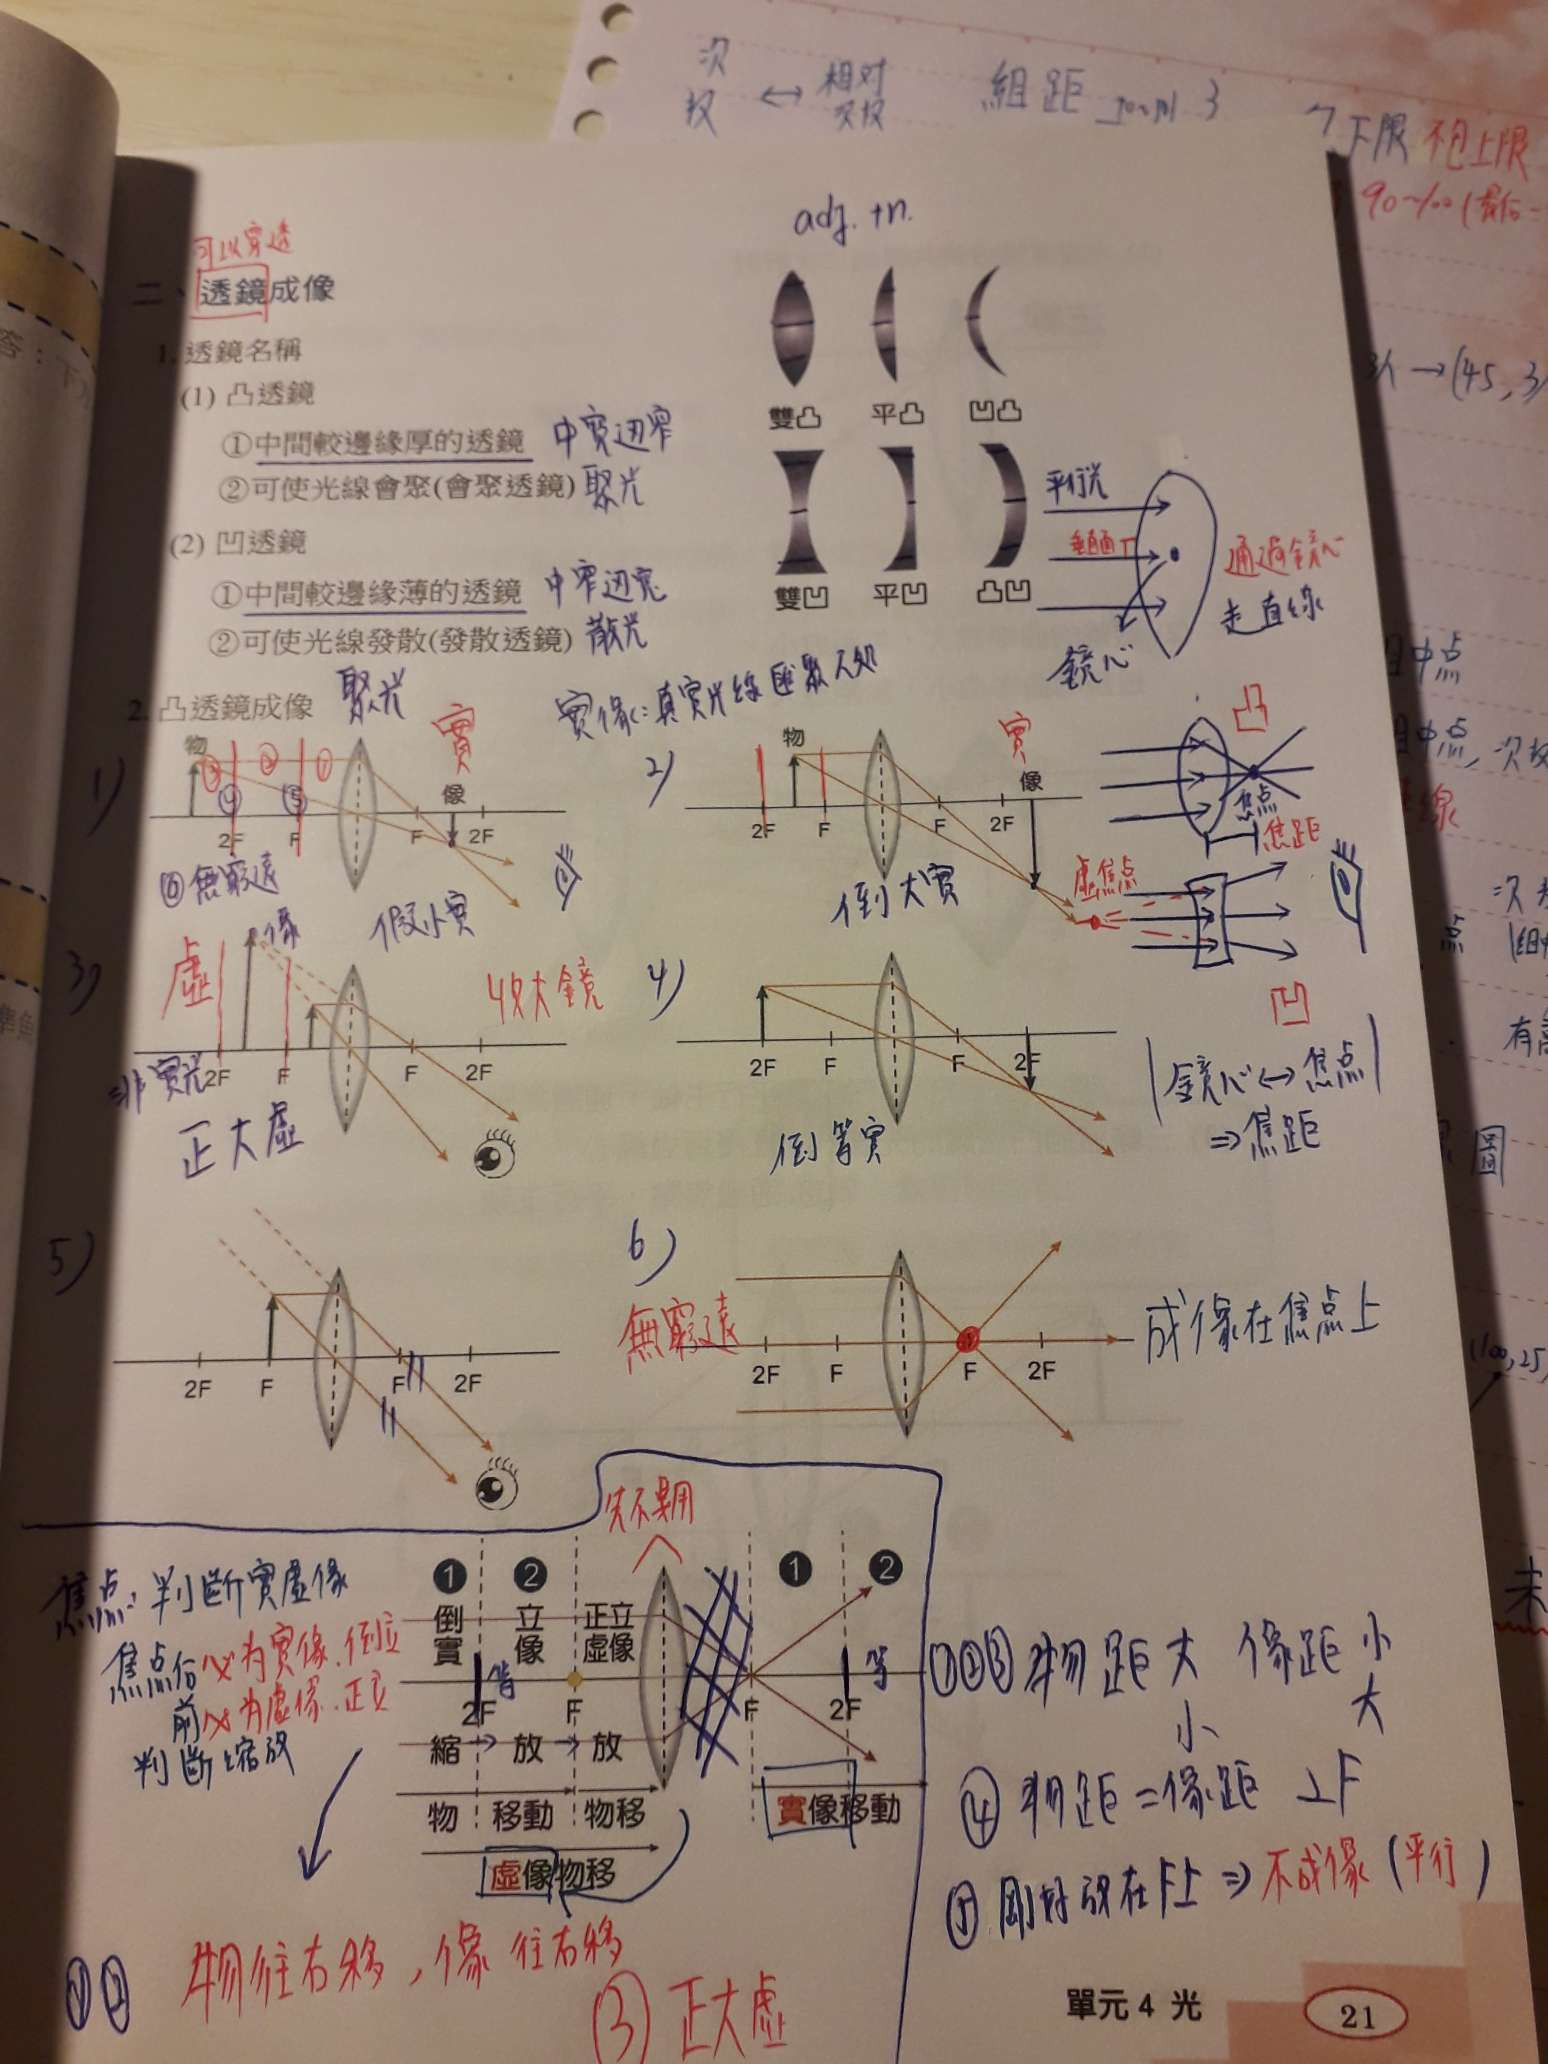 次 相对 組距
数 次数
下限 不包上限
90~100
adj. +n.
可以穿透
二、透鏡成像
1. 透鏡名稱
(1) 凸透鏡
①中間較邊緣厚的透鏡 中寬边窄
②可使光線會聚(會聚透鏡) 聚光
(2) 凹透鏡
①中間較邊緣薄的透鏡 中窄边宽
②可使光線發散(發散透鏡) 散光
雙凸 平凸 凹凸
雙凹 平凹 凸凹
平行光
垂直
通過鏡心
走直線
鏡心
2. 凸透鏡成像 聚光
實像:真實光線匯聚
1) 物 ③ ② ① 實
④ ⑤ 像
2F F F 2F
⑥無窮遠
2) 物 實
像
2F F F 2F
倒大實
凸
焦点
焦距
虛焦点
凹
|鏡心↔焦点|
⇒焦距
3) 虛 像 放大鏡
2F F F 2F
正大虛
4)
2F F F 2F
倒等實
5)
2F F F 2F
6)
無窮遠
2F F F 2F
成像在焦点上
焦点:判斷實虛像
焦点后 必为實像.倒立
前 必为虛像.正立
判斷縮放
先不要用
❶ ❷ ❶ ❷
倒 立 正立
實 像 虛像
等 等
2F F F 2F
縮→放→放
物 移動 物移 實像移動
虛像物移
①②③ 物距大 像距小
小 大
④ 物距=像距 2F
⑤ 剛好放在F上⇒不成像(平行)
①② 物往右移,像往右移
③ 正大虛
單元 4 光 21